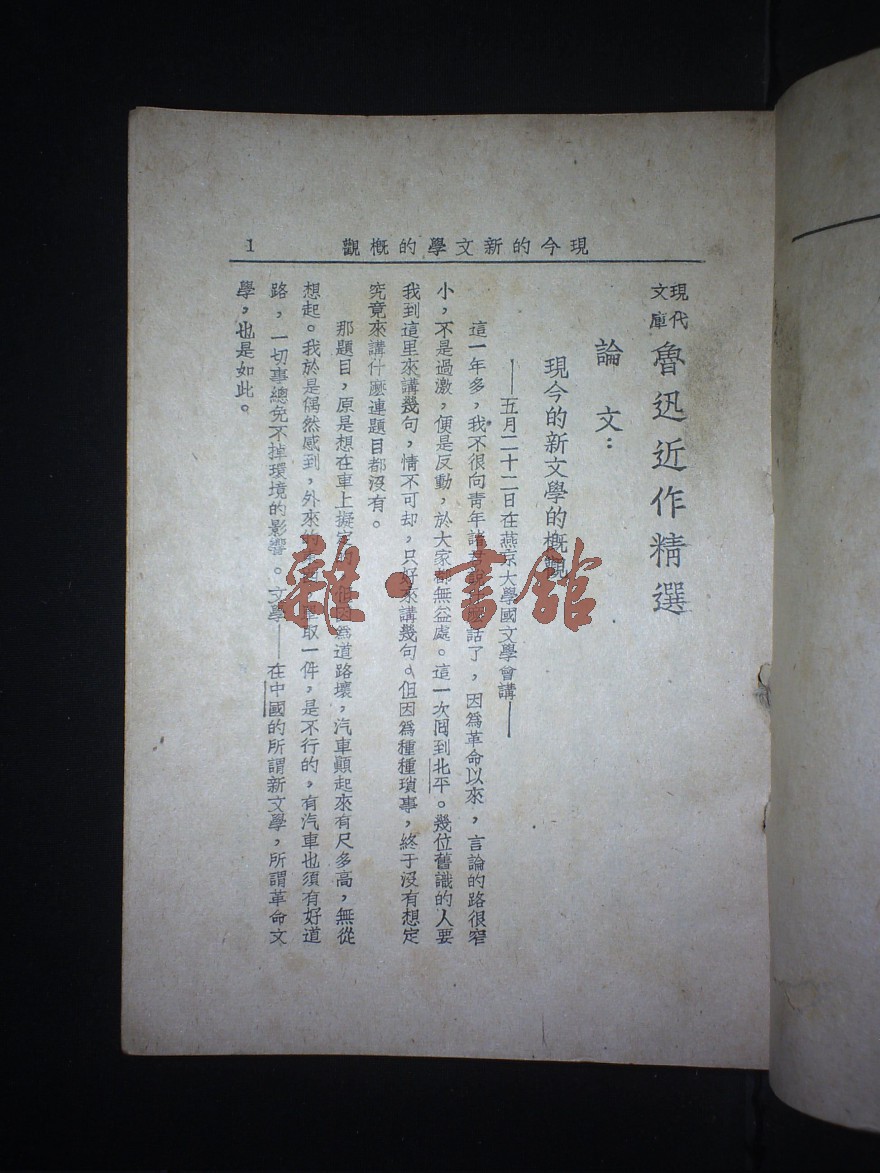 觀概的學文新的今現
1
現代
文庫
魯迅近作精選
論文：
現今的新文學的概觀
——五月二十二日在燕京大學國文學會講——
這一年多，我不很向青年諸君說話了，因爲革命以來，言論的路很窄
小，不是過激，便是反動，於大家都無益處。這一次囘到北平。幾位舊識的人要
我到這里來講幾句，情不可却，只好來講幾句。但因爲種種瑣事，終于沒有想定
究竟來講什麽連題目都沒有。
那題目，原是想在車上擬定的，但因爲道路壞，汽車顛起來有尺多高，無從
想起。我於是偶然感到，外來的取一件，是不行的，有汽車也須有好道
路，一切事總免不掉環境的影響。文學——在中國的所謂新文學，所謂革命文
學，也是如此。
雜·書館